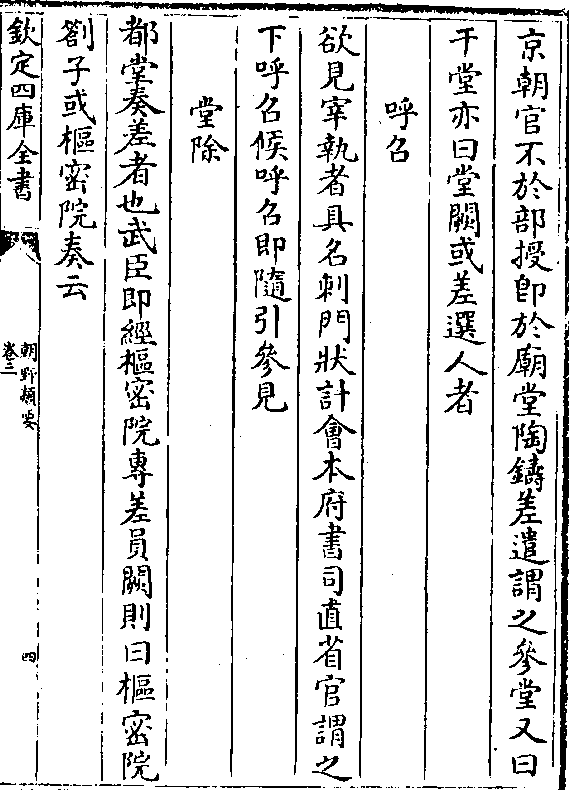 京朝官不於部授即於廟堂陶鑄差遣謂之參堂又曰
干堂亦曰堂闕或差選人者
呼召
欲見宰執者具名刺門狀計會本府書司直省官謂之
下呼召候呼召即隨引參見
堂除
都堂奏差者也武臣即經樞密院專差員闕則曰樞密院
劄子或樞密院奏云
欽定四庫全書
朝野類要
卷三
四